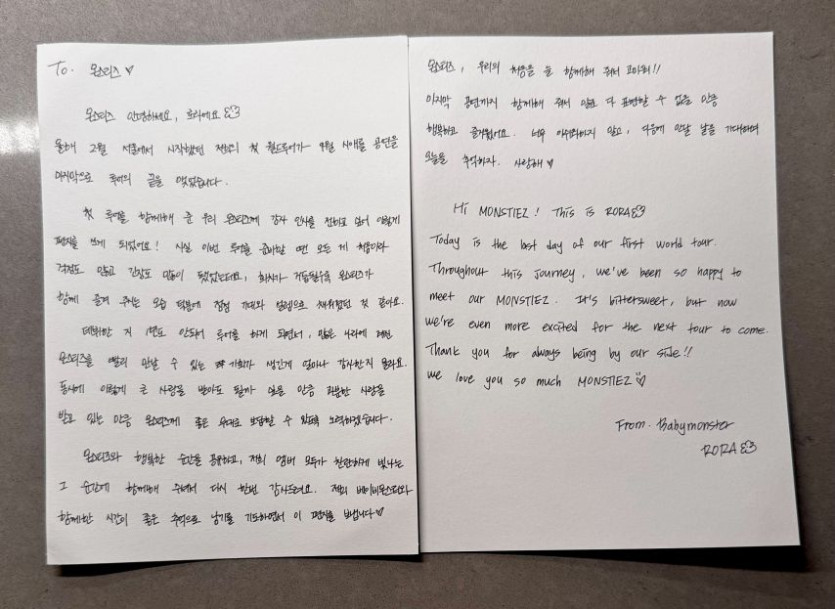 To. 몬스티즈 ♥
몬스티즈 안녕하세요, 로라예요
올해 2월 서울에서 시작했던 저희의 첫 월드투어가 시애틀 공연을
마지막으로 투어의 끝을 맺었습니다.
첫 투어를 함께해 준 우리 몬스티즈께 감사 인사를 전하고 싶어 이렇게
편지를 쓰게 되었어요! 사실 이번 투어를 준비할 땐 모든 게 처음이라
걱정도 많고 긴장도 많이 됐었는데요, 회차가 거듭될수록 몬스티즈가
함께 즐겨 주시는 모습 덕분에 점점 기대와 설렘으로 채워졌던 것 같아요.
데뷔한 지 1년도 안돼서 투어를 하게 되면서, 많은 나라에 계신
몬스티즈를 빨리 만날 수 있는 기회가 생긴게 얼마나 감사한지 몰라요.
동시에 이렇게 큰 사랑을 받아도 될까 싶을 만큼 과분한 사랑을
받고 있는 만큼 몬스티즈께 좋은 무대로 보답할 수 있도록 노력하겠습니다.
몬스티즈와 행복한 순간을 공유하고, 저희 멤버 모두가 찬란하게 빛나는
그 순간에 함께해 주셔서 다시 한번 감사드려요. 저희 베이비몬스터와
함께한 시간이 좋은 추억으로 남기를 기도하면서 이 편지를 보냅니다♥
몬스티즈, 우리의 처음을 늘 함께해 줘서 고마워!!
마지막 공연까지 함께해 줘서 말로 다 표현할 수 없을 만큼
행복하고 즐거웠어요. 너무 아쉬워하지 말고, 다음에 만날 날을 기대하며
오늘을 추억하자. 사랑해♥
Hi MONSTIEZ! This is RORA
Today is the last day of our first world tour.
Throughout this journey, we've been so happy to
meet our MONSTIEZ. It's bittersweet, but now
we're even more excited for the next tour to come.
Thank you for always being by our side!!
We love you so much MONSTIEZ
From. Babymonster
RORA